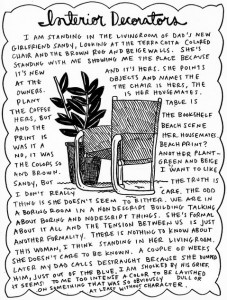 Interior Decorators
I AM STANDING IN THE LIVINGROOM OF DAD'S NEW
GIRLFRIEND SANDY, LOOKING AT THE TERRA COTTA COLORED
CHAIR AND THE BROWN RUG AND BEIGE WALLS. SHE'S
STANDING WITH ME SHOWING ME THE PLACE BECAUSE
IT'S NEW AND IT'S HERS. SHE POINTS
AT THE OBJECTS AND NAMES THE
OWNERS. THE CHAIR IS HERS, THE
PLANT IS HER HOUSEMATES.
THE COFFEE TABLE IS
HERS, BUT THE BOOKSHELF
AND THE BEACH SCENE
PRINT IS HER HOUSEMATES.
WAS IT A BEACH PRINT?
NO, IT WAS ANOTHER PLANT—
THE COLORS SO GREEN AND BEIGE
AND BROWN. I WANT TO LIKE
SANDY, BUT THE TRUTH IS
I DON'T REALLY CARE. THE ODD
THING IS SHE DOESN'T SEEM TO EITHER. WE ARE IN
A BORING ROOM IN A NONDESCRIPT BUILDING TALKING
ABOUT BORING AND NONDESCRIPT THINGS. SHE'S FORMAL
ABOUT IT ALL AND THE TENSION BETWEEN US IS JUST
ANOTHER FORMALITY. THERE IS NOTHING TO KNOW ABOUT
THIS WOMAN, I THINK STANDING IN HER LIVING ROOM.
SHE DOESN'T CARE TO BE KNOWN. A COUPLE OF WEEKS
LATER MY DAD CALLS DESTRAUGHT BECAUSE SHE DUMPED
HIM, JUST OUT OF THE BLUE. I AM SHOCKED BY HIS GRIEF.
IT SEEMS TO ME TOO INTENSE A COLOR TO BE LAVISHED
ON SOMETHING THAT WAS SO OBVIOUSLY DULL OR
AT LEAST WITHOUT CHARACTER.